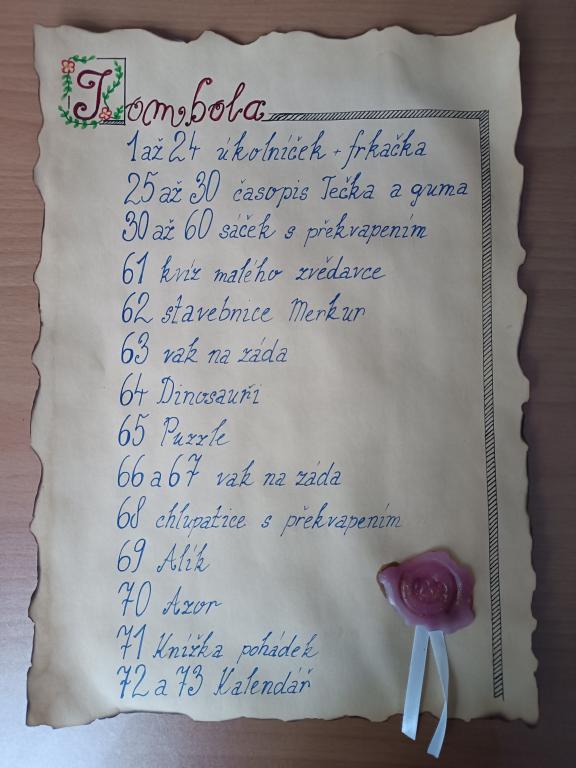 Tombola
1 až 24 úkolníček + frkačka
25 až 30 časopis Tečka a guma
30 až 60 sáček s překvapením
61 kvíz malého zvědavce
62 stavebnice Merkur
63 vak na záda
64 Dinosauři
65 Puzzle
66 a 67 vak na záda
68 chlupatice s překvapením
69 Alík
70 Azor
71 Knížka pohádek
72 a 73 Kalendář